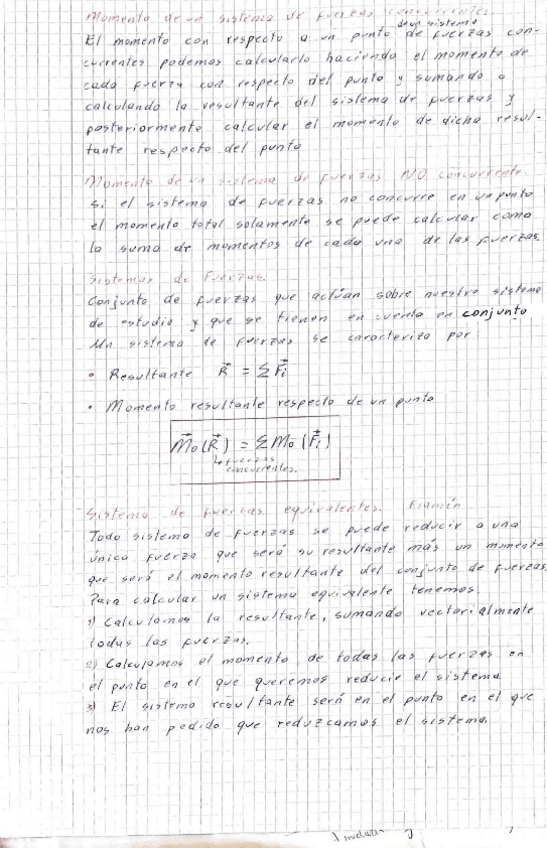 Momento de un sistema de fuerzas concurrentes.
de un sistema
El momento con respecto a un punto de fuerzas con-
currentes podemos calcularlo haciendo el momento de
cada fuerza con respecto del punto y sumando o
calculando la resultante del sistema de fuerzas y
posteriormente calcular el momento de dicha resul-
tante respecto del punto
Momento de un sistema de fuerzas NO concurrente.
Si el sistema de fuerzas no concurre en un punto
el momento total solamente se puede calcular como
la suma de momentos de cada una de las fuerzas.
Sistemas de Fuerzas.
Conjunto de fuerzas que actúan sobre nuestro sistema
de estudio y que se tienen en cuenta en conjunto
Un sistema de fuerzas se caracteriza por
• Resultante R⃗ = Σ F⃗i
• Momento resultante respecto de un punto
M⃗o(R⃗) = Σ Mo (F⃗i)
↳ fuerzas
concurrentes.
Sistema de fuercas equivalentes. Examen
Todo sistema de fuerzas se puede reducir a una
única fuerza que será su resultante más un momento
que será el momento resultante del conjunto de fuerzas.
Para calcular un sistema equivalente tenemos.
1) Calculamos la resultante, sumando vectorialmente
todas las fuerzas.
2) Calculamos el momento de todas las fuerzas en
el punto en el que queremos reducir el sistema
3) El sistema resultante será en el punto en el que
nos han pedido que reduzcamos el sistema.